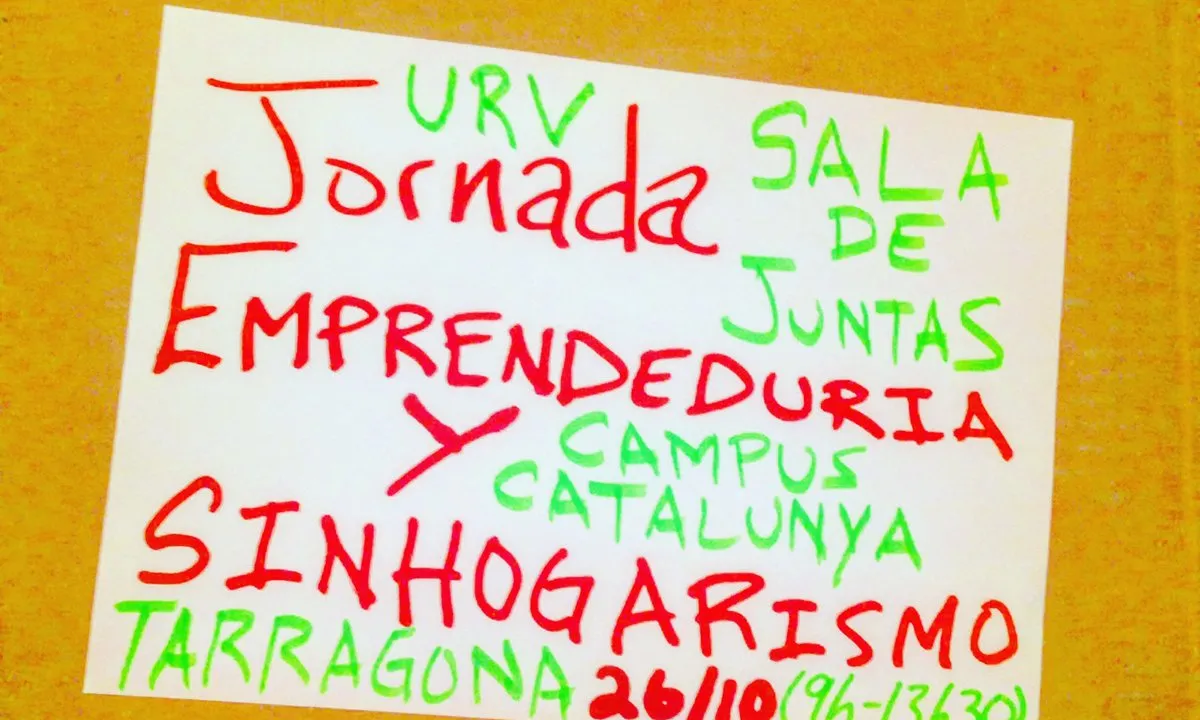 URV
Jornada
SALA
DE
JUNTAS
EMPRENDEDURIA
Y
CAMPUS
CATALUNYA
SINHOGARISMO
TARRAGONA 26/10 (9h-13h30)